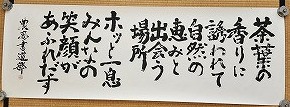 茶葉の
香りに
誘われて
自然の
恵みと
出会う
場所
ホッと一息
みんなの
笑顔が
あふれだす